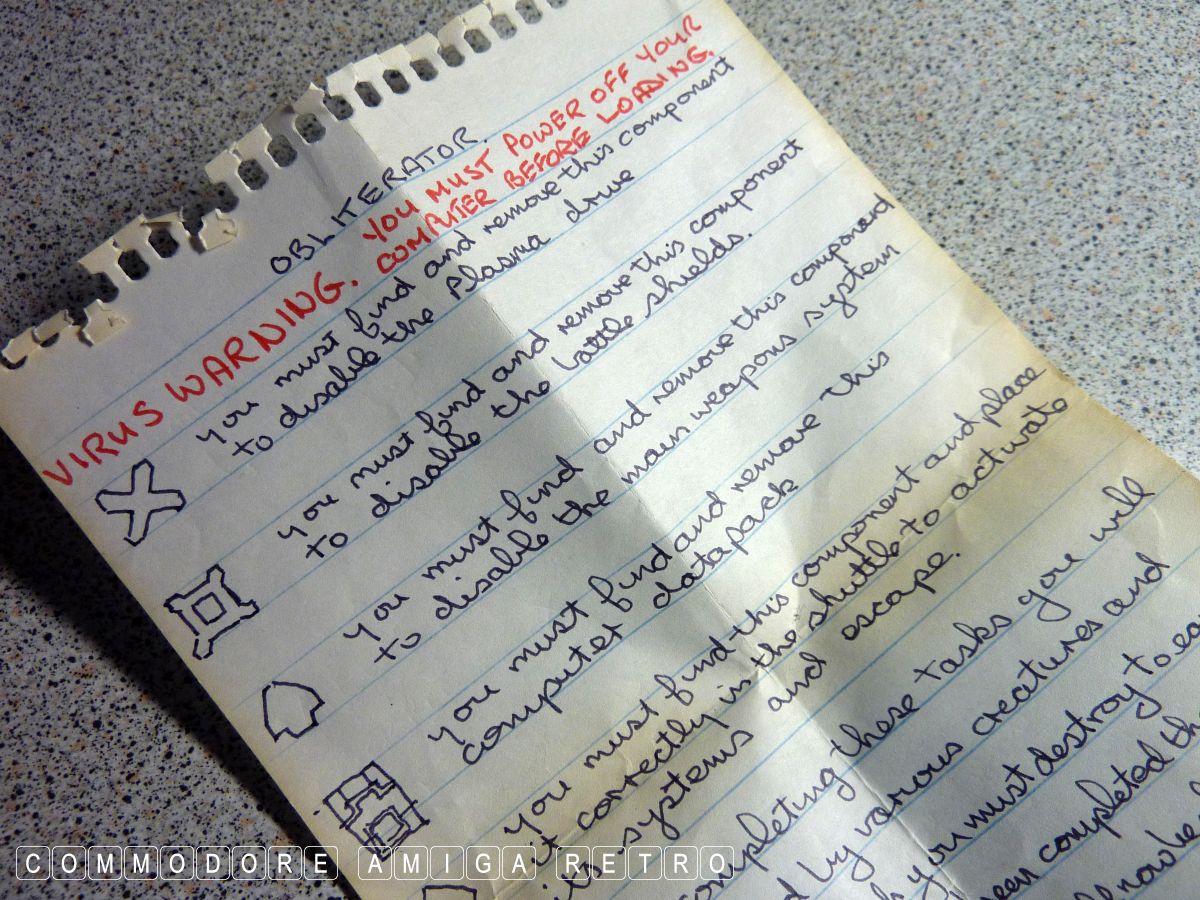 OBLITERATOR.
VIRUS WARNING. YOU MUST POWER OFF YOUR
COMPUTER BEFORE LOADING.
you must find and remove this component
to disable the plasma drive
you must find and remove this component
to disable the battle shields.
you must find and remove this component
to disable the main weapons system
you must find and remove this
computer datapack
you must find this component and place
it correctly in the shuttle to activate
its systems and escape.
completing these tasks you will
by various creatures and
you must destroy to
been completed
COMMODORE AMIGA RETRO